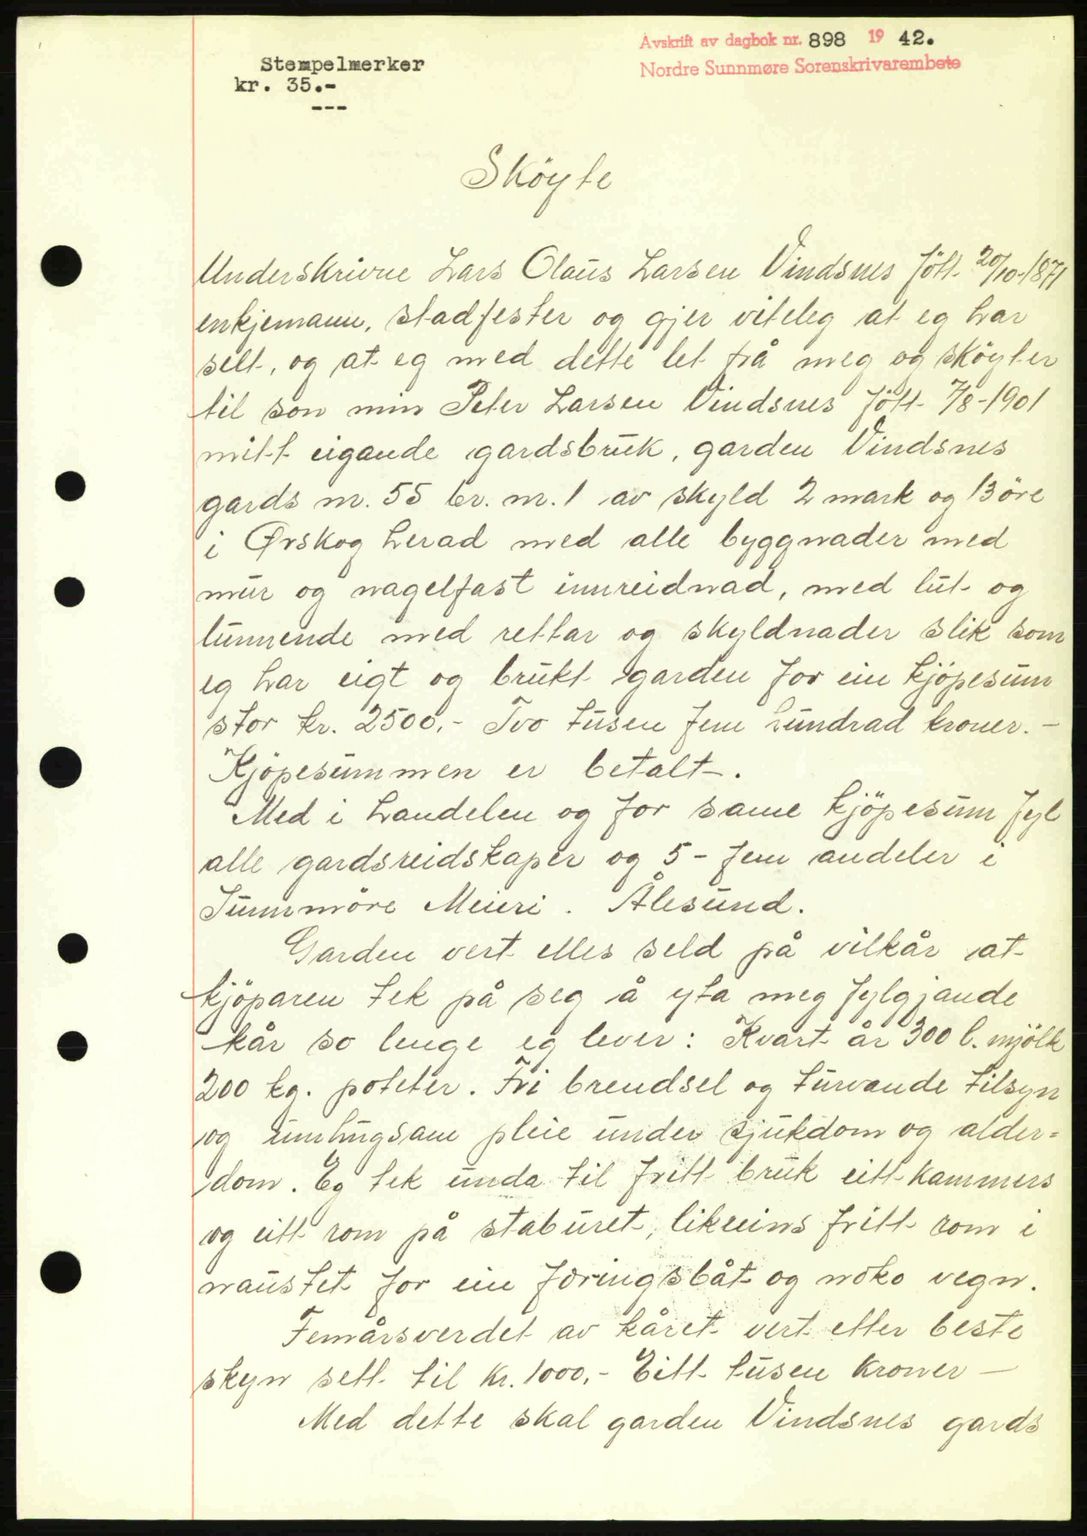 Avskrift av dagbok nr. 898 1942.
Nordre Sunnmøre Sorenskrivarembete
Stempelmerker
kr. 35.-
---
Sköyte
Underskrivne Lars Olaus Larsen Vindsnes fött 20/10-1871
enkjemann, stadfester og gjer viteleg at eg har
selt, og at eg med dette let frå meg og sköyter
til son min Peter Larsen Vindsnes fött 7/8-1901
mitt eigande gardsbruk, garden Vindsnes
gards nr. 55 br. nr. 1 av skyld 2 mark og 13 öre
i Ørskog herad med alle byggnader med
mur og nagelfast innreidnad, med lut og
lunnende med rettar og skyldnader slik som
eg har eigt og brukt garden for ein kjöpesum
stor kr. 2500,- Tvo tusen fem hundrad kroner. -
Kjöpesummen er betalt-.
Med i handelen og for same kjöpesum fyl
alle gardsreidskaper og 5 - fem andeler i
Sunnmöre Meieri. Ålesund.
Garden vert elles seld på vilkår at
kjöparen tek på seg å yta meg fylgjande
kår so lenge eg lever: Kvart år 300 l. mjölk
200 kg. poteter. Fri brendsel og turvande tilsyn
og umhugsam pleie under sjukdom og alder=
dom. Eg tek unda til fritt bruk eitt kammers
og eitt rom på staburet, likeeins fritt rom i
naustet for ein færingsbåt og noko vegn.
Femårsverdet av kåret vert etter beste
skyn sett til kr. 1000,- Eitt tusen kroner —
Med dette skal garden Vindsnes gards